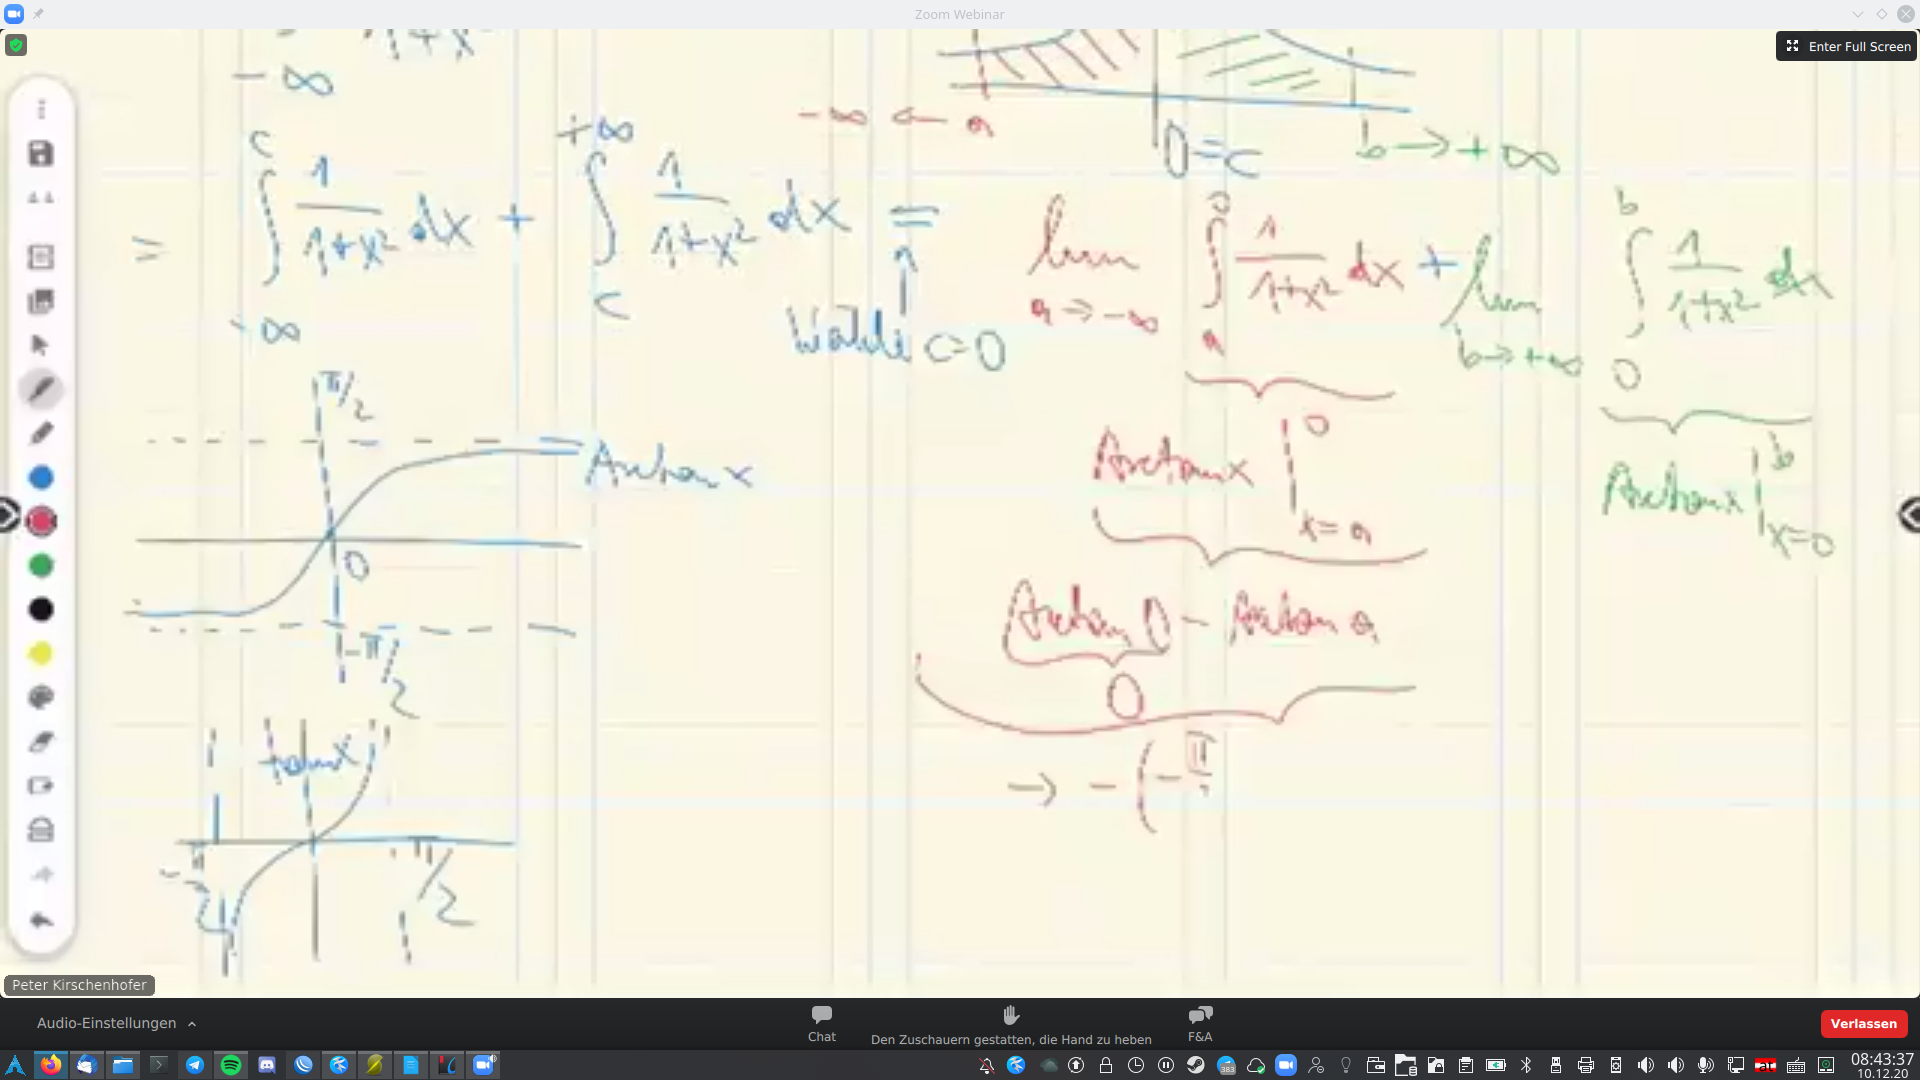 Zoom Webinar
Enter Full Screen
1+x²
-∞
-∞ ← a
0=c
b → +∞
= ∫_{-∞}^{c} 1/(1+x²) dx + ∫_{c}^{+∞} 1/(1+x²) dx =
↑
Wähle c=0
lim_{a→-∞} ∫_{a}^{0} 1/(1+x²) dx + lim_{b→+∞} ∫_{0}^{b} 1/(1+x²) dx
Arctan x |_{x=a}^{0}
Arctan x |_{x=0}^{b}
Arctan 0 - Arctan a
0
→ -(-π
π/2
Arctan x
0
-π/2
tan x
-π/2
π/2
Peter Kirschenhofer
Audio-Einstellungen
Chat
Den Zuschauern gestatten, die Hand zu heben
F&A
Verlassen
383
08:43:37
10.12.20